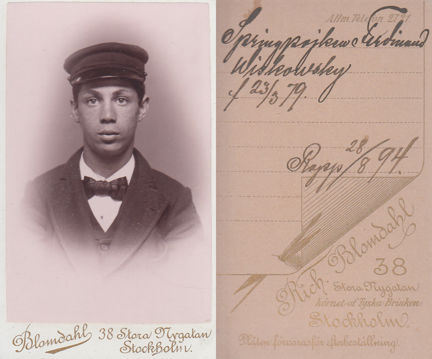 Blomdahl 38 Stora Nygatan
Stockholm.
Allm. Telefon 2721
Springpojken Ferdinand
Witkowsky
f 23/3 79.
Rapp 28/8 94.
Rich. Blomdahl
38
Stora Nygatan
hörnet af Tyska Brinken
Stockholm.
Plåten förvaras för efterbeställning.